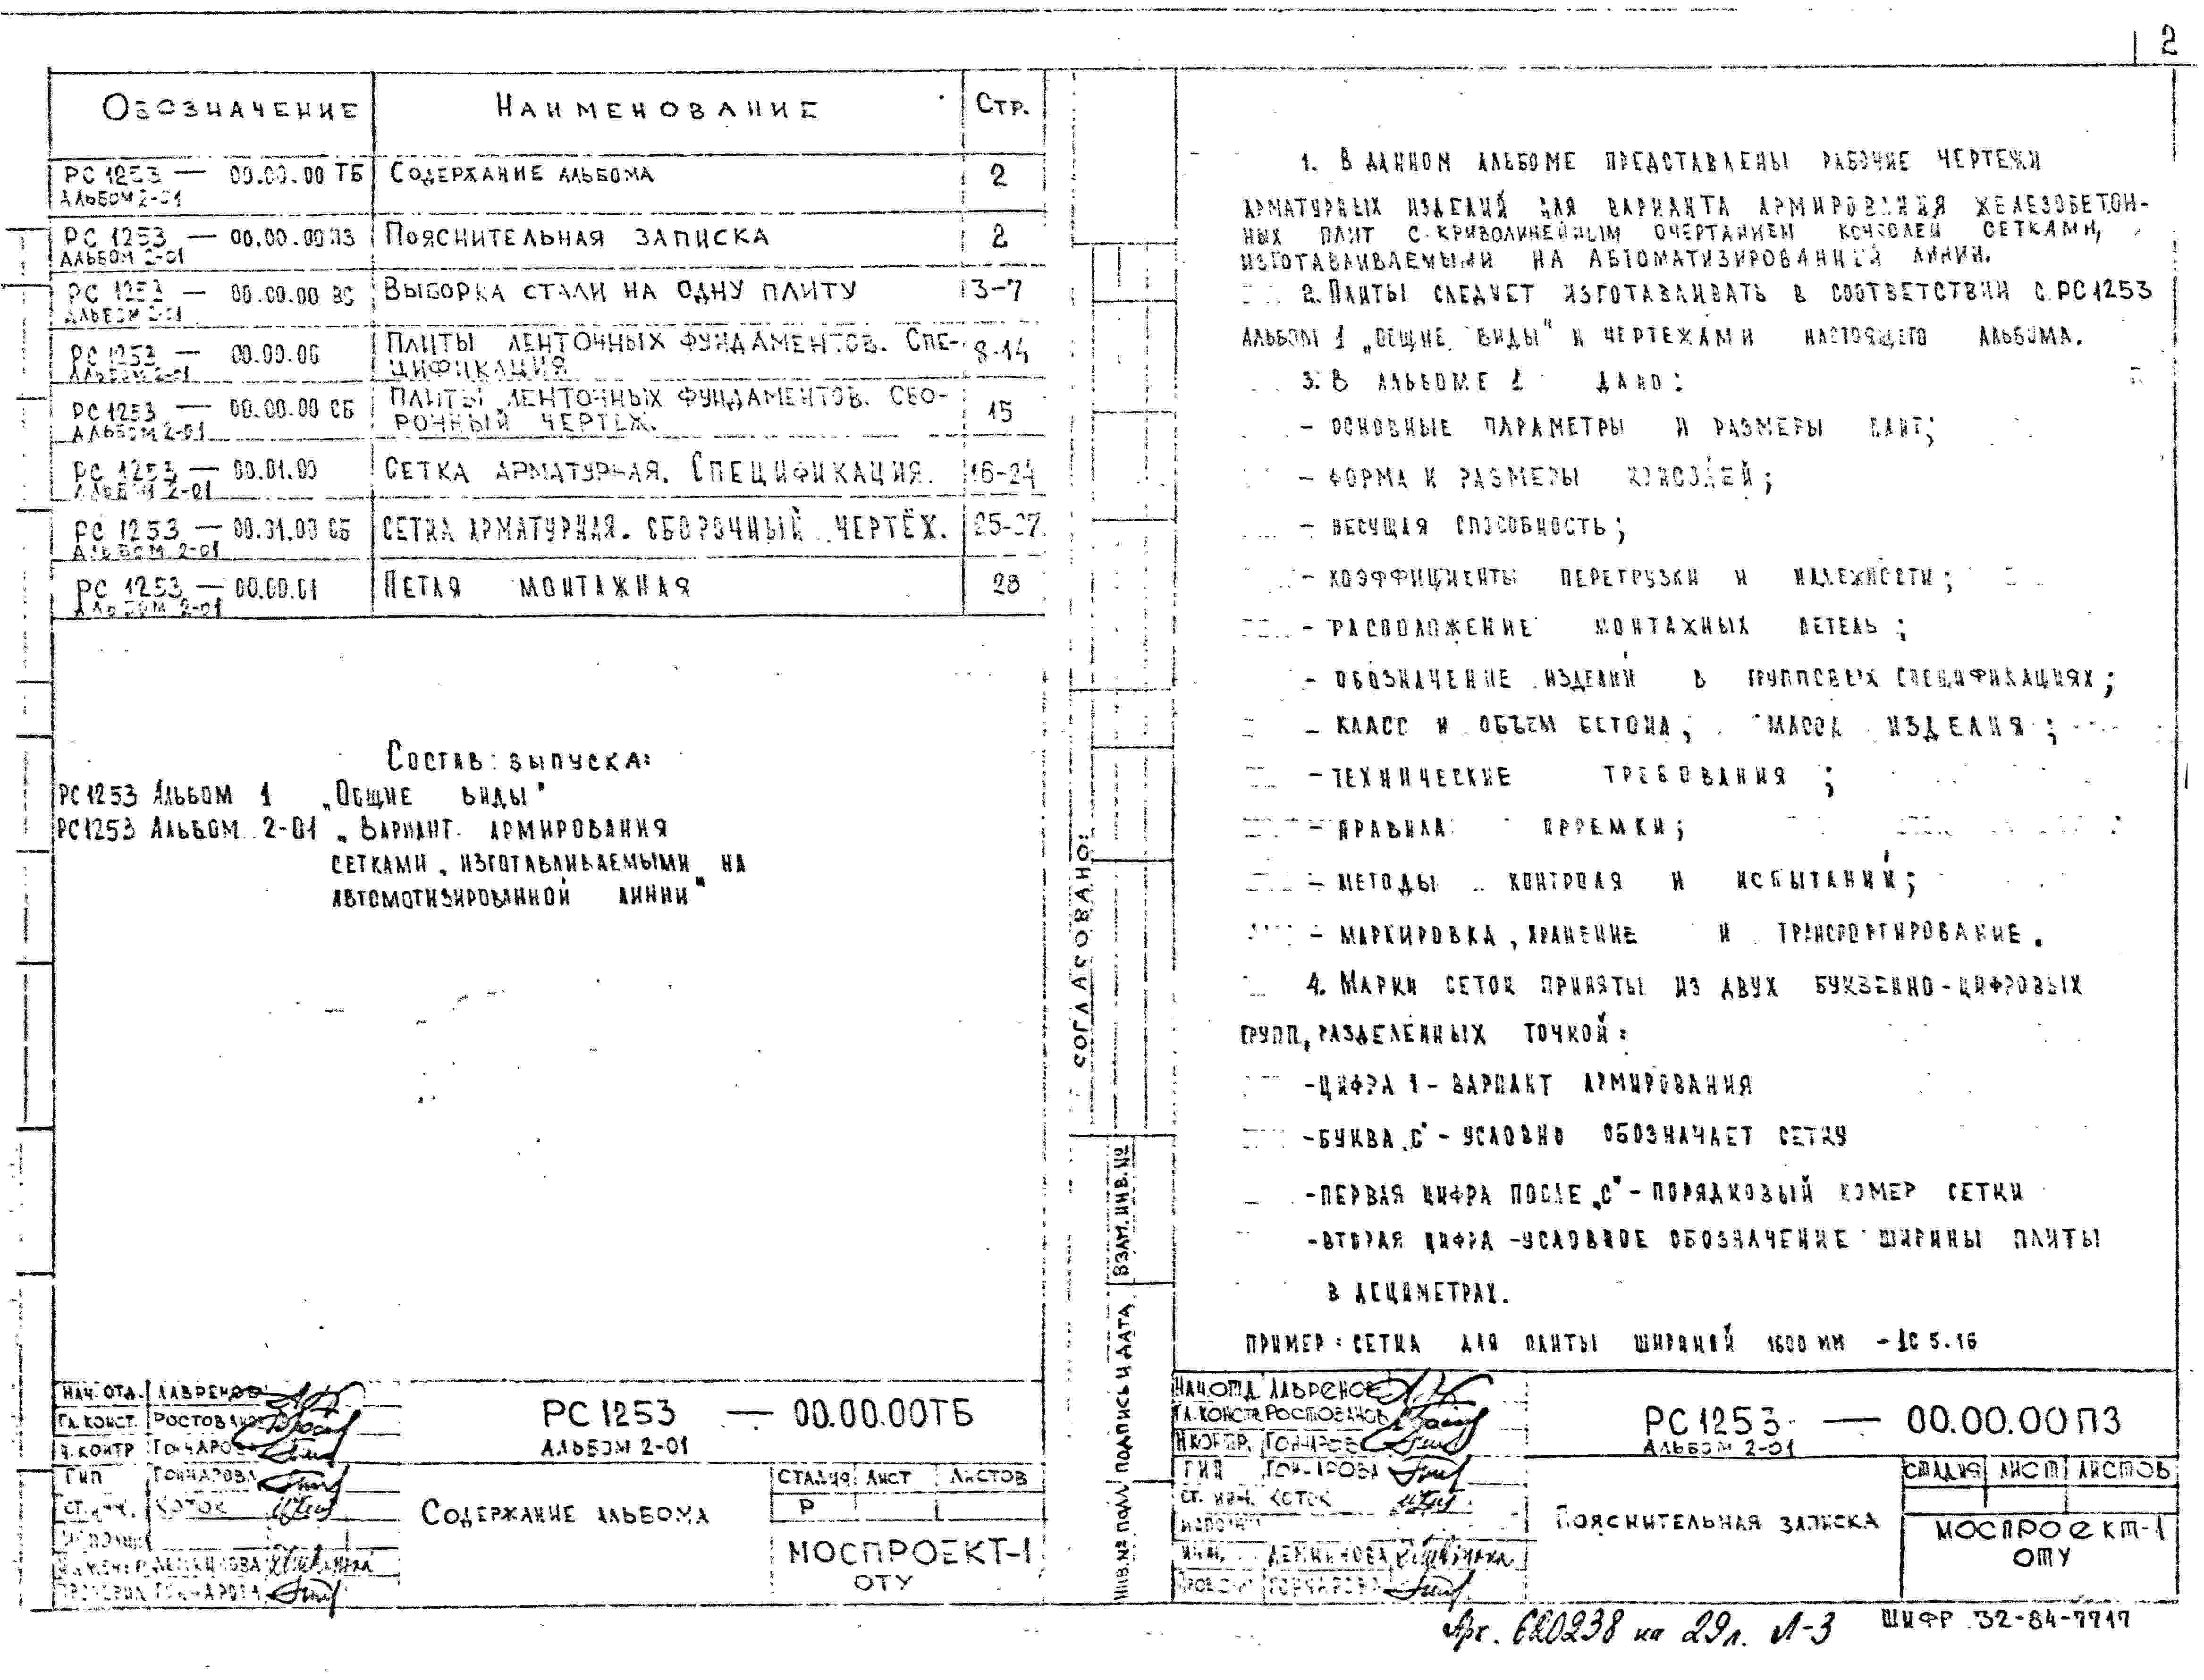 2
Обозначение Наименование Стр.
РС 1253 — 00.00.00 ТБ Содержание альбома 2
Альбом 2-01
РС 1253 — 00.00.00 ПЗ Пояснительная записка 2
Альбом 2-01
РС 1253 — 00.00.00 ВС Выборка стали на одну плиту 3-7
Альбом 2-01
РС 1253 — 00.00.00 Плиты ленточных фундаментов. Спе- 8-14
Альбом 2-01 цификация
РС 1253 — 00.00.00 СБ Плиты ленточных фундаментов. Сбо- 15
Альбом 2-01 рочный чертеж.
РС 1253 — 00.01.00 Сетка арматурная. Спецификация. 16-24
Альбом 2-01
РС 1253 — 00.01.00 СБ Сетка арматурная. Сборочный чертёж. 25-27
Альбом 2-01
РС 1253 — 00.00.01 Петля монтажная 28
Альбом 2-01
Состав выпуска:
РС1253 Альбом 1 „Общие виды"
РС1253 Альбом 2-01 „Вариант армирования
сетками, изготавливаемыми на
автомотизированной линии"
Нач. отд. Лавренов
Гл. конст. Ростованов
Н. контр Гончарова
ГИП Гончарова
Ст. инж. Коток
Исполнил
Инженер
Проверил Гончарова
РС 1253 — 00.00.00ТБ
Альбом 2-01
Содержание альбома
Стадия Лист Листов
Р 1
МОСПРОЕКТ-1
ОТУ
СОГЛАСОВАНО:
Взам. инв. №
Подпись и дата
Инв. № подл
1. В данном альбоме представлены рабочие чертежи
арматурных изделий для варианта армирования железобетон-
ных плит с криволинейным очертанием консолей сетками,
изготавливаемыми на автоматизированной линии.
2. Плиты следует изготавливать в соответствии с РС1253
альбом 1 „Общие виды" и чертежами настоящего альбома.
3. В альбоме 1 дано:
- основные параметры и размеры плит;
- форма и размеры консолей;
- несущая способность;
- коэффициенты перегрузки и надежности;
- расположение монтажных петель;
- обозначение изделий в групповых спецификациях;
- класс и объем бетона, масса изделия;
- технические требования;
- правила прремки;
- методы контроля и испытаний;
- маркировка, хранение и транспортирование.
4. Марки сеток приняты из двух буквенно-цифровых
групп, разделенных точкой:
- цифра 1 - вариант армирования
- буква „С" - условно обозначает сетку
- первая цифра после „С" - порядковый номер сетки
- вторая цифра - условное обозначение ширины плиты
в дециметрах.
Пример: сетка для плиты шириной 1600 мм - 1С 5.16
Нач. отд Лавренов
Гл. констр Ростованов
Н.контр. Гончарова
ГИП Гончарова
Ст. инж. Коток
Исполнит
Инж.
Проверил Гончарова
РС 1253 — 00.00.00ПЗ
Альбом 2-01
Пояснительная записка
Стадия Лист Листов
МОСПРОЕКТ-1
ОТУ
Арх. 620238 на 29л. Л-3
ШИФР 32-84-7717